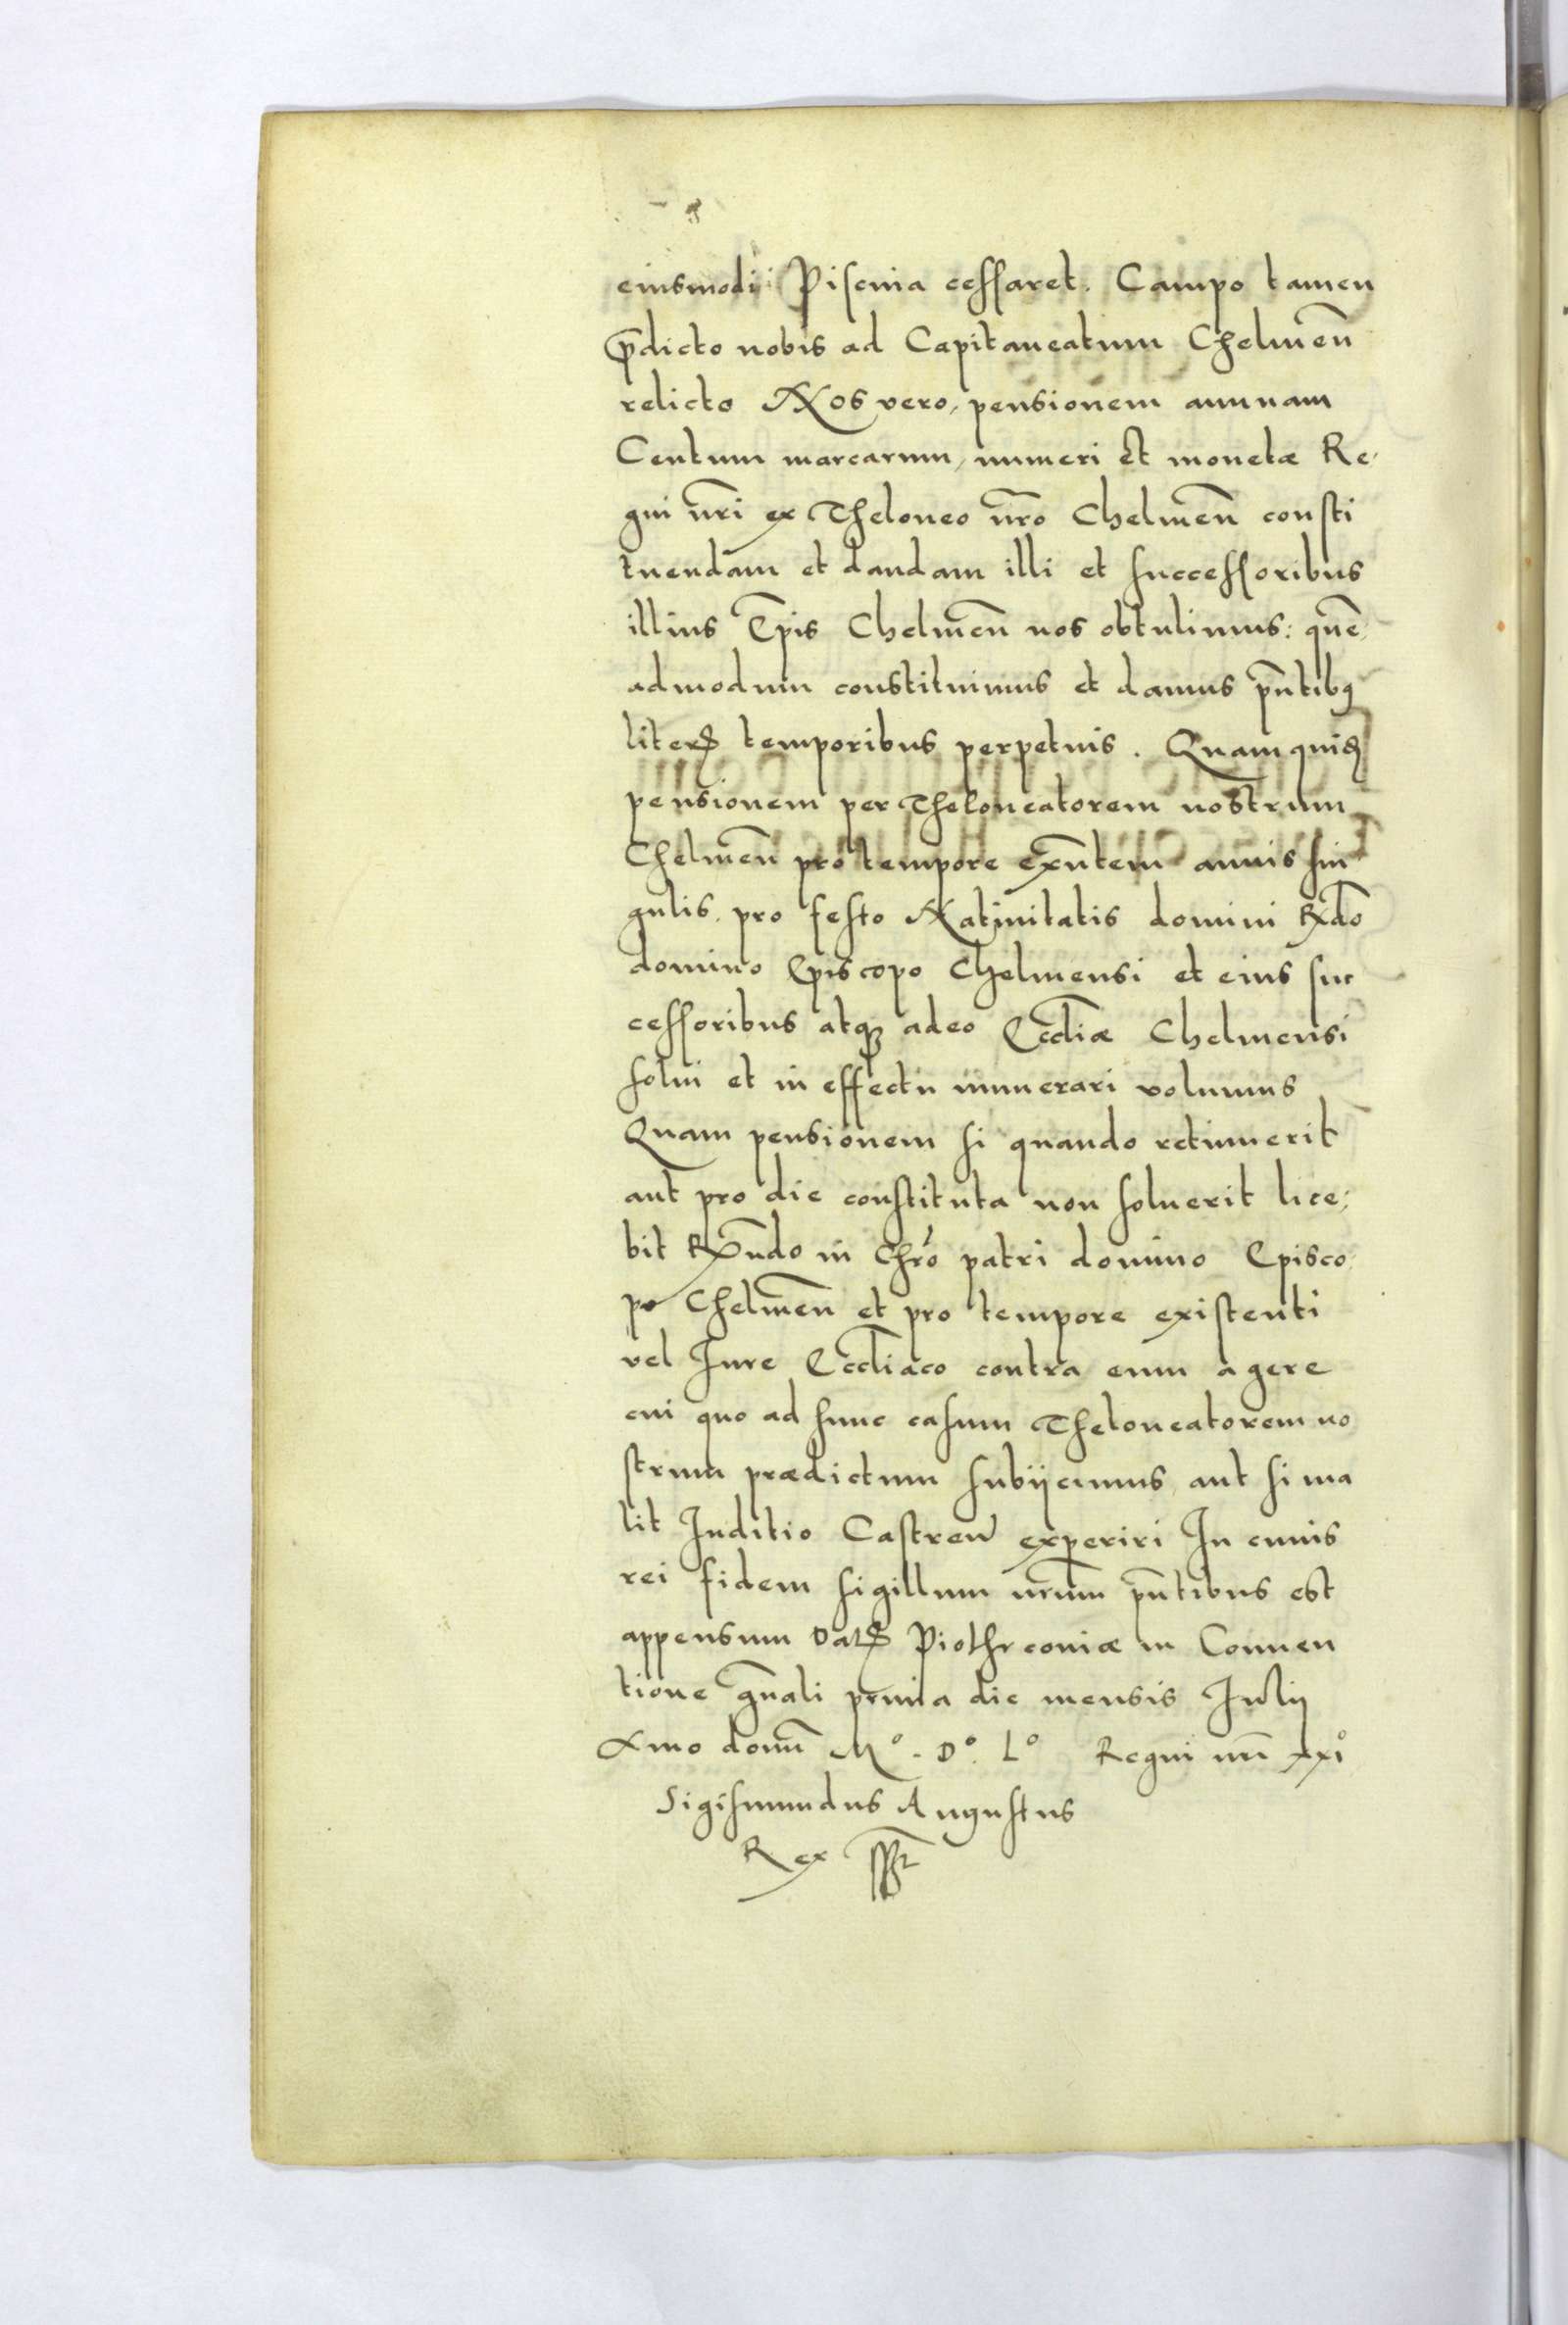 eiusmodi Piscina cessaret. Campo tamen
p̄dicto nobis ad Capitaneatum Chelmen̄
relicto Nos vero, pensionem annuam
Centum marcarum, numeri et monetæ Re,
gni nr̄i ex Theloneo nr̄o Chelmen̄ consti
tuendam et dandam illi et successoribus
illius Ep̄is Chelmen̄ nos obtulimus: quē,
admodum constituimus et damus pn̄tibꝫ
literꝭ temporibus perpetuis. Quam quiđ
pensionem per Theloneatorem nostrum
Chelmen̄ pro tempore exn̄tem annis sin
gulis, pro festo Natiuitatis domini Rdō
domino Episcopo Chelmensi et eius suc
cessoribus atqꝫ adeo Eccl̄iæ Chelmensi
solui et in effectu numerari volumus
Quam pensionem si quando retinuerit
aut pro die constituta non soluerit lice,
bit Rn̄do in Chr̄o patri domino Episco
po Chelmen̄ et pro tempore existenti
vel Jure Eccl̄iaco contra eum agere
cui quo ad hunc casum Theloneatorem no
strum prædictum subijcimus, aut si ma
lit Juditio Castren̄ experiri In cuius
rei fidem sigillum nr̄um pn̄tibus est
appensum Datꝭ Piothrconiæ in Conuen
tione gn̄ali prima die mensis Julij
Anno domī M° . D°. L° Regni nr̄i xxi°
Sigismundus Augustus
Rex